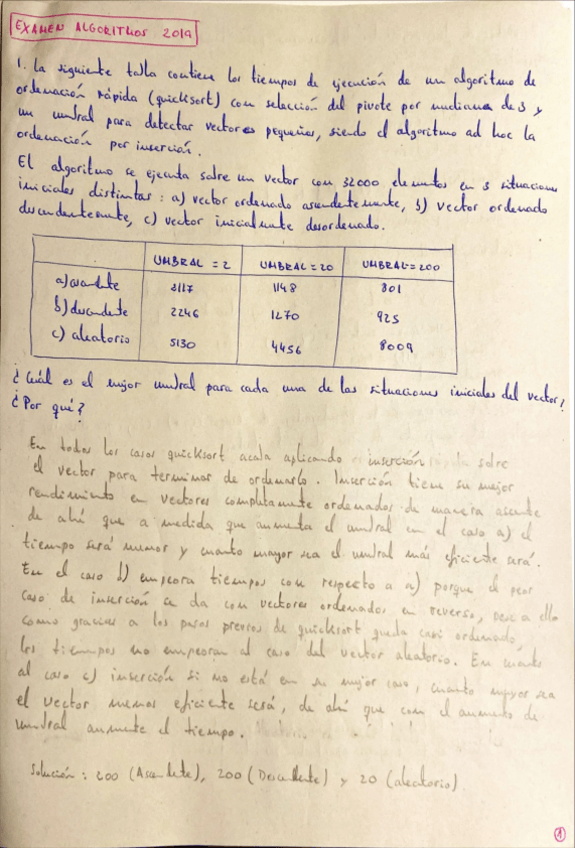 EXAMEN ALGORITMOS 2019
1. La siguiente tabla contiene los tiempos de ejecución de un algoritmo de
ordenación rápida (quicksort) con selección del pivote por mediana de 3 y
un umbral para detectar vectores pequeños, siendo el algoritmo ad hoc la
ordenación por inserción.
El algoritmo se ejecuta sobre un vector con 32000 elementos en 3 situaciones
iniciales distintas: a) vector ordenado ascendentemente, b) vector ordenado
descendentemente, c) vector inicialmente desordenado.
UMBRAL = 2 UMBRAL=20 UMBRAL=200
a) ascendente 2117 1148 801
b) descendente 2246 1270 925
c) aleatorio 5130 4456 8009
¿Cuál es el mejor umbral para cada una de las situaciones iniciales del vector?
¿Por qué?
En todos los casos quicksort acaba aplicando inserción sobre
el vector para terminar de ordenarlo. Inserción tiene su mejor
rendimiento en vectores completamente ordenados de manera ascente
de ahí que a medida que aumenta el umbral en el caso a) el
tiempo será menor y cuanto mayor sea el umbral más eficiente será.
En el caso b) empeora tiempos con respecto a a) porque el peor
caso de inserción se da con vectores ordenados en reverso, pese a ello
como gracias a los pasos previos de quicksort queda casi ordenado
los tiempos no empeoran al caso del vector aleatorio. En cuanto
al caso c) inserción si no está en su mejor caso, cuanto mayor sea
el vector menos eficiente será, de ahí que con el aumento de
umbral aumente el tiempo.
Solución: 200 (Ascendente), 200 (Descendente) y 20 (aleatorio).
1